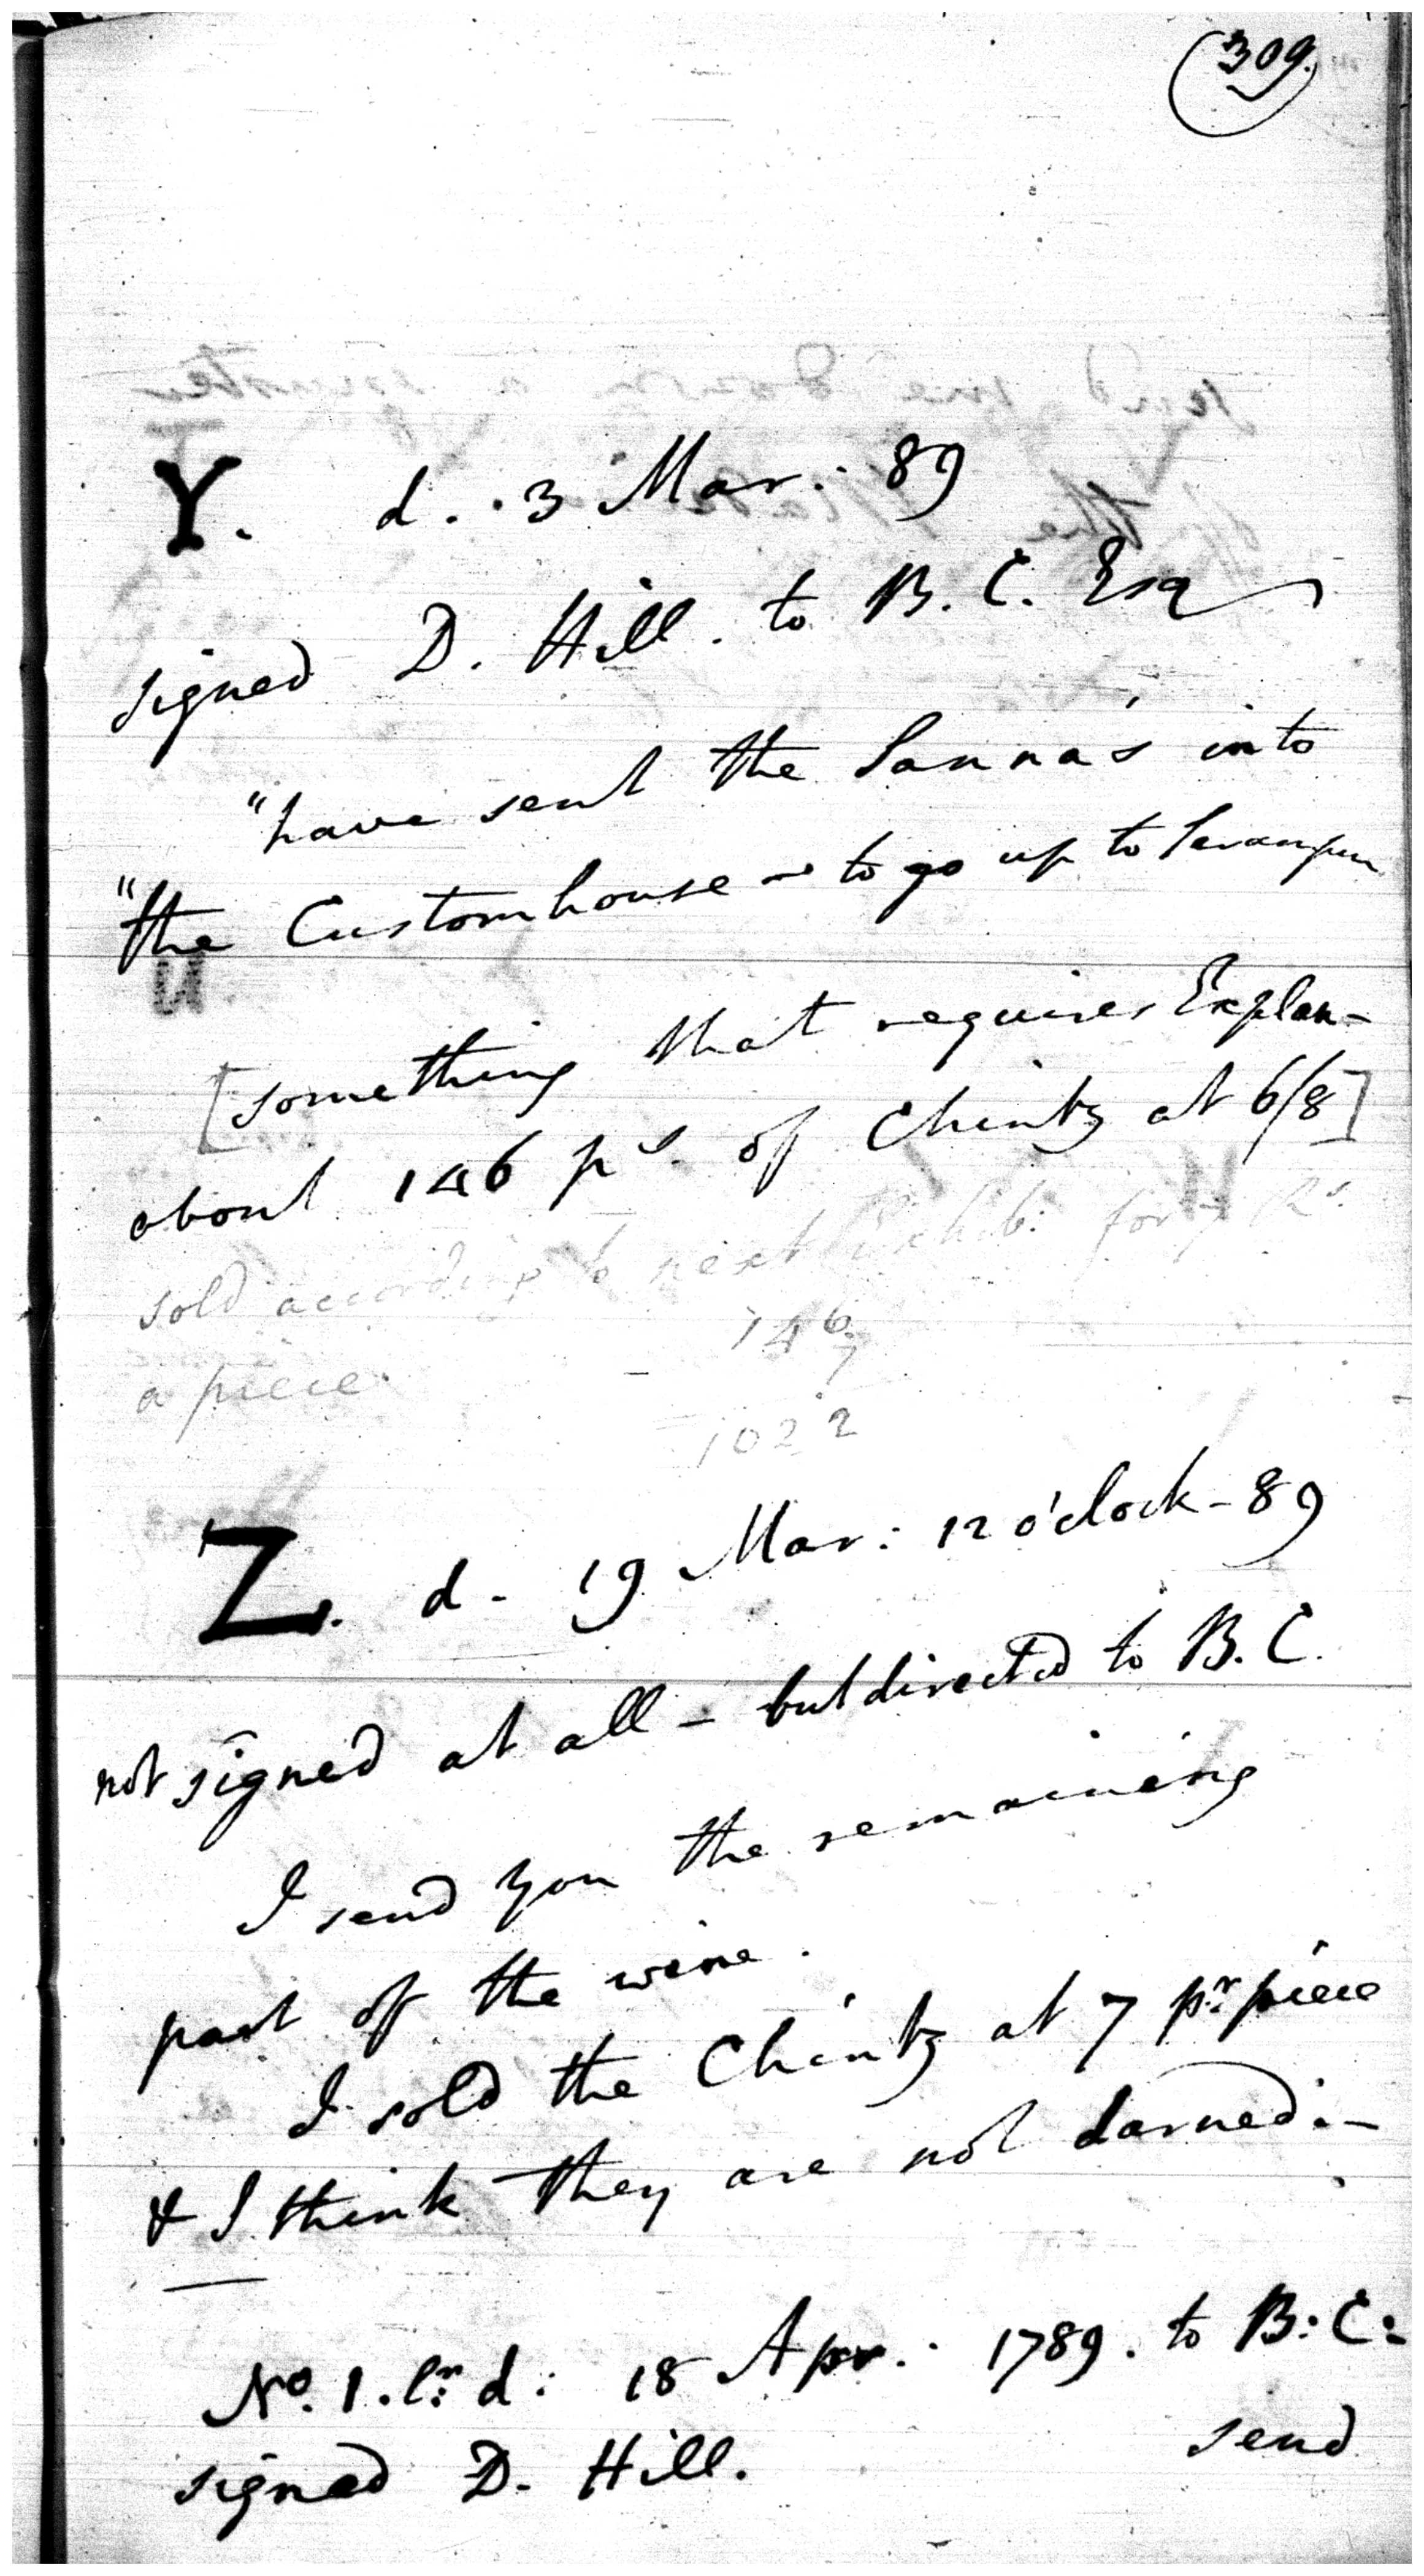 (309.)
Y. d. . 3 Mar: 89
signed D. Hill. to B. C. Esq
"have sent the Sanna's into
"the Customhouse to go up to Serampur
[something that requires Explan-
about 146 ps. of Chintz at 6/8]
sold according to next Exhib: for 7 Rs.
146
7
a piece
1022
Z. d - 19 Mar: 12 o'clock - 89
not signed at all - but directed to B. C.
I send you the remaining
part of the wine.
I sold the Chintz at 7 pr piece
& I think they are not darned:-
No. 1. lr: d: 18 Apr. 1789. to B: C:
signed D. Hill.
send